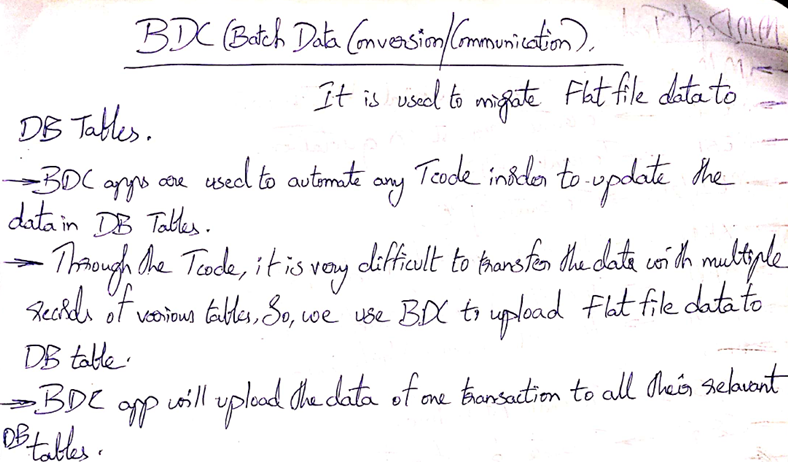 BDC (Batch Data Conversion/Communication).
It is used to migrate Flat file data to
DB Tables.
→ BDC apps are used to automate any Tcode inorder to update the
data in DB Tables.
→ Through the Tcode, it is very difficult to transfer the data with multiple
records of various tables, So, we use BDC to upload Flat file data to
DB table.
→ BDC app will upload the data of one transaction to all their relavant
DB tables.